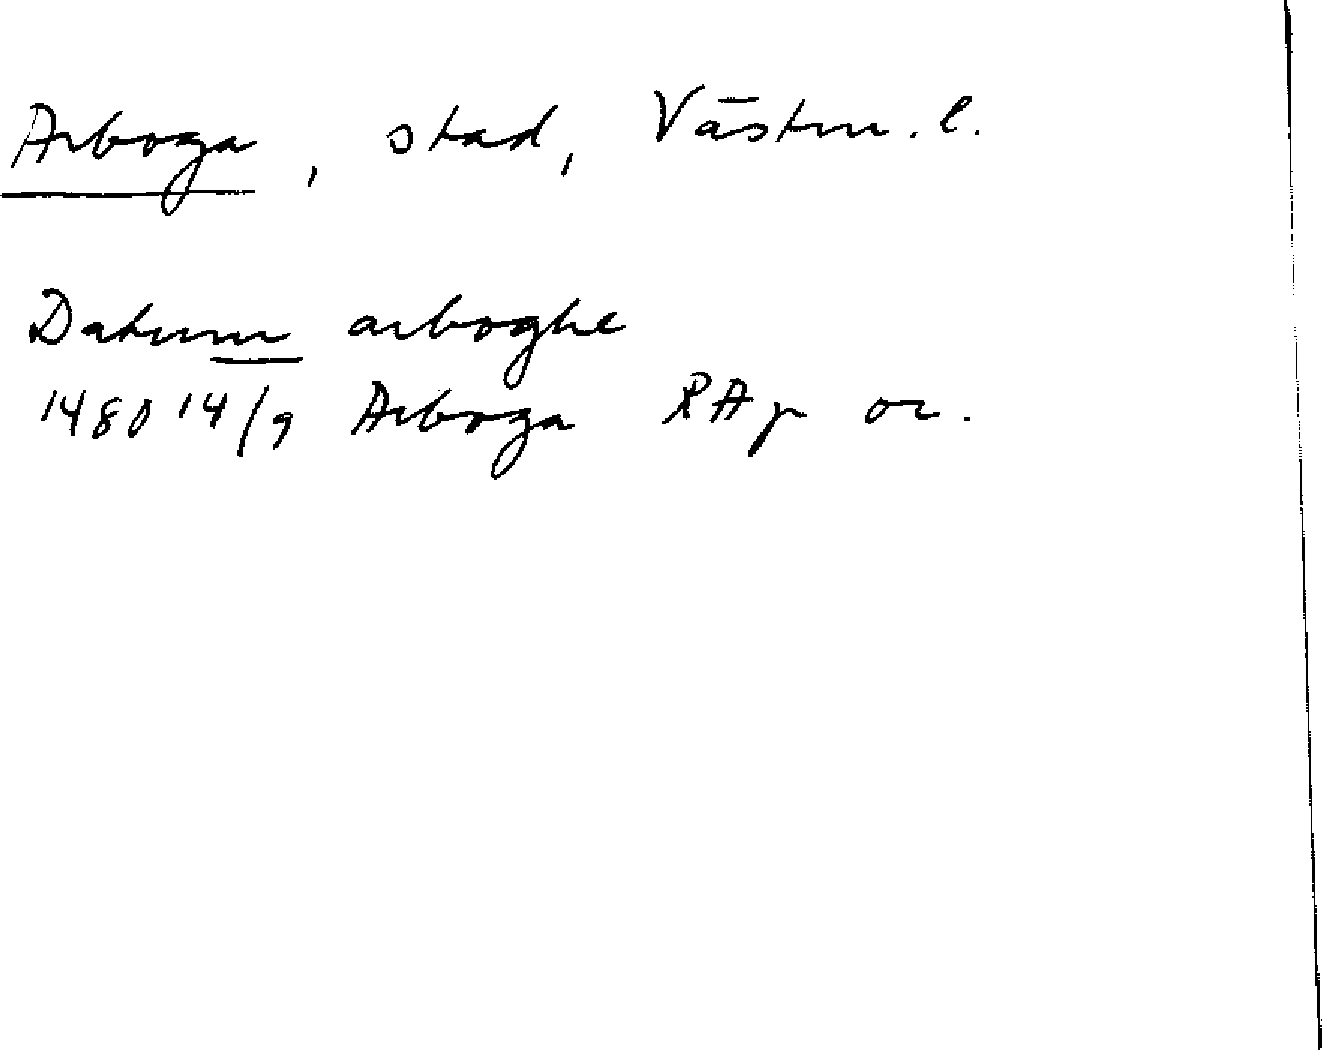 Arboga, stad, Västm. l.
Datum arboghe
1480 14/9 Arboga RAp or.